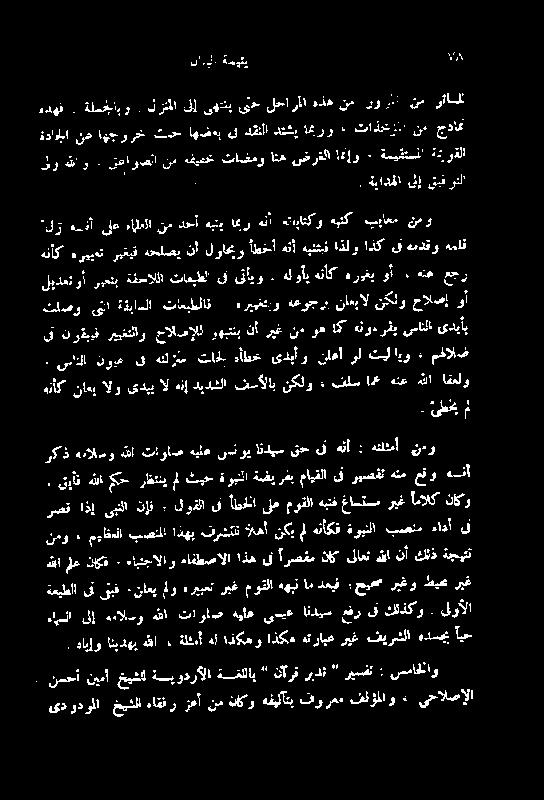 ٧٨
يتيمة البيان
للسائر من المرور من هذه المراحل حتى ينتهى إلى المنزل . وبالجملة . فهذه
نماذج من المؤخذات ، وربما يشتد النقد فى بعضها حيث خروجها عن الجادة
القويمة المستقيمة ، وإنما الغرض هنا ومضات خفيفة من الصواعق . والله ولى
التوفيق إلى الهداية .
ومن معايب كتبه وكتاباته أنه ربما ينبه أحد من العلماء على أنه زل
قلمه وقدمه فى كذا ولذا فيتنبه أنه أخطأ ويحاول أن يصلحه فيغير تعبيره كأنه
رجع عنه ، أو يغيره كأنه يأوله . ويأتى فى الطبعات اللاحقة بتغيير أو تعديل
أو إصلاح ولكن لا يعلن برجوعه وبتغييره فالطبعات السابقة التى وصلت
بأيدى الناس يقرءونه كما هو من غير أن ينتبهوا للإصلاح والتغيير فيبقون فى
ضلالهم ، وياليت لو أعلن وأبدى خطأه لجلت منزلته فى عيون الناس .
ولعفا الله عنه عما سلف ، ولكن بالأسف الشديد إنه لا يبدى ولا يعلن كأنه
لم يخطئ .
ومن أمثلته : أنه فى حق سيدنا يونس عليه صلوات الله وسلامه ذكر
أنه وقع منه تقصير فى القيام بفريضة النبوة حيث لم ينتظر حكم الله فأبق .
وكان كلاماً غير مستساغ فنبه القوم على الخطأ فى القول . فإن النبى إذا قصر
فى أداء منصب النبوة فكأنه لم يكن أهلاً للتشرف بهذا المنصب العظيم ، ومن
نتيجة ذلك أن الله تعالى كان مقصراً فى هذا الاصطفاء والاجتباء . فكان علم الله
غير محيط وغير صحيح . فبعد ما نبهه القوم غير تعبيره ولم يعلن . فبقى فى الطبعة
الأولى . وكذلك فى رفع سيدنا عيسى عليه صلوات الله وسلامه إلى السماء
حياً بجسده الشريف غير عبارته هكذا وهكذا له أمثلة ، الله يهدينا وإياه .
والخامس : تفسير " تدبر قرآن " باللغة الأردوية للشيخ أمين أحسن
الإصلاحى ، والمؤلف معروف بتآليفه وكان من أعز رفقاء الشيخ المودودى